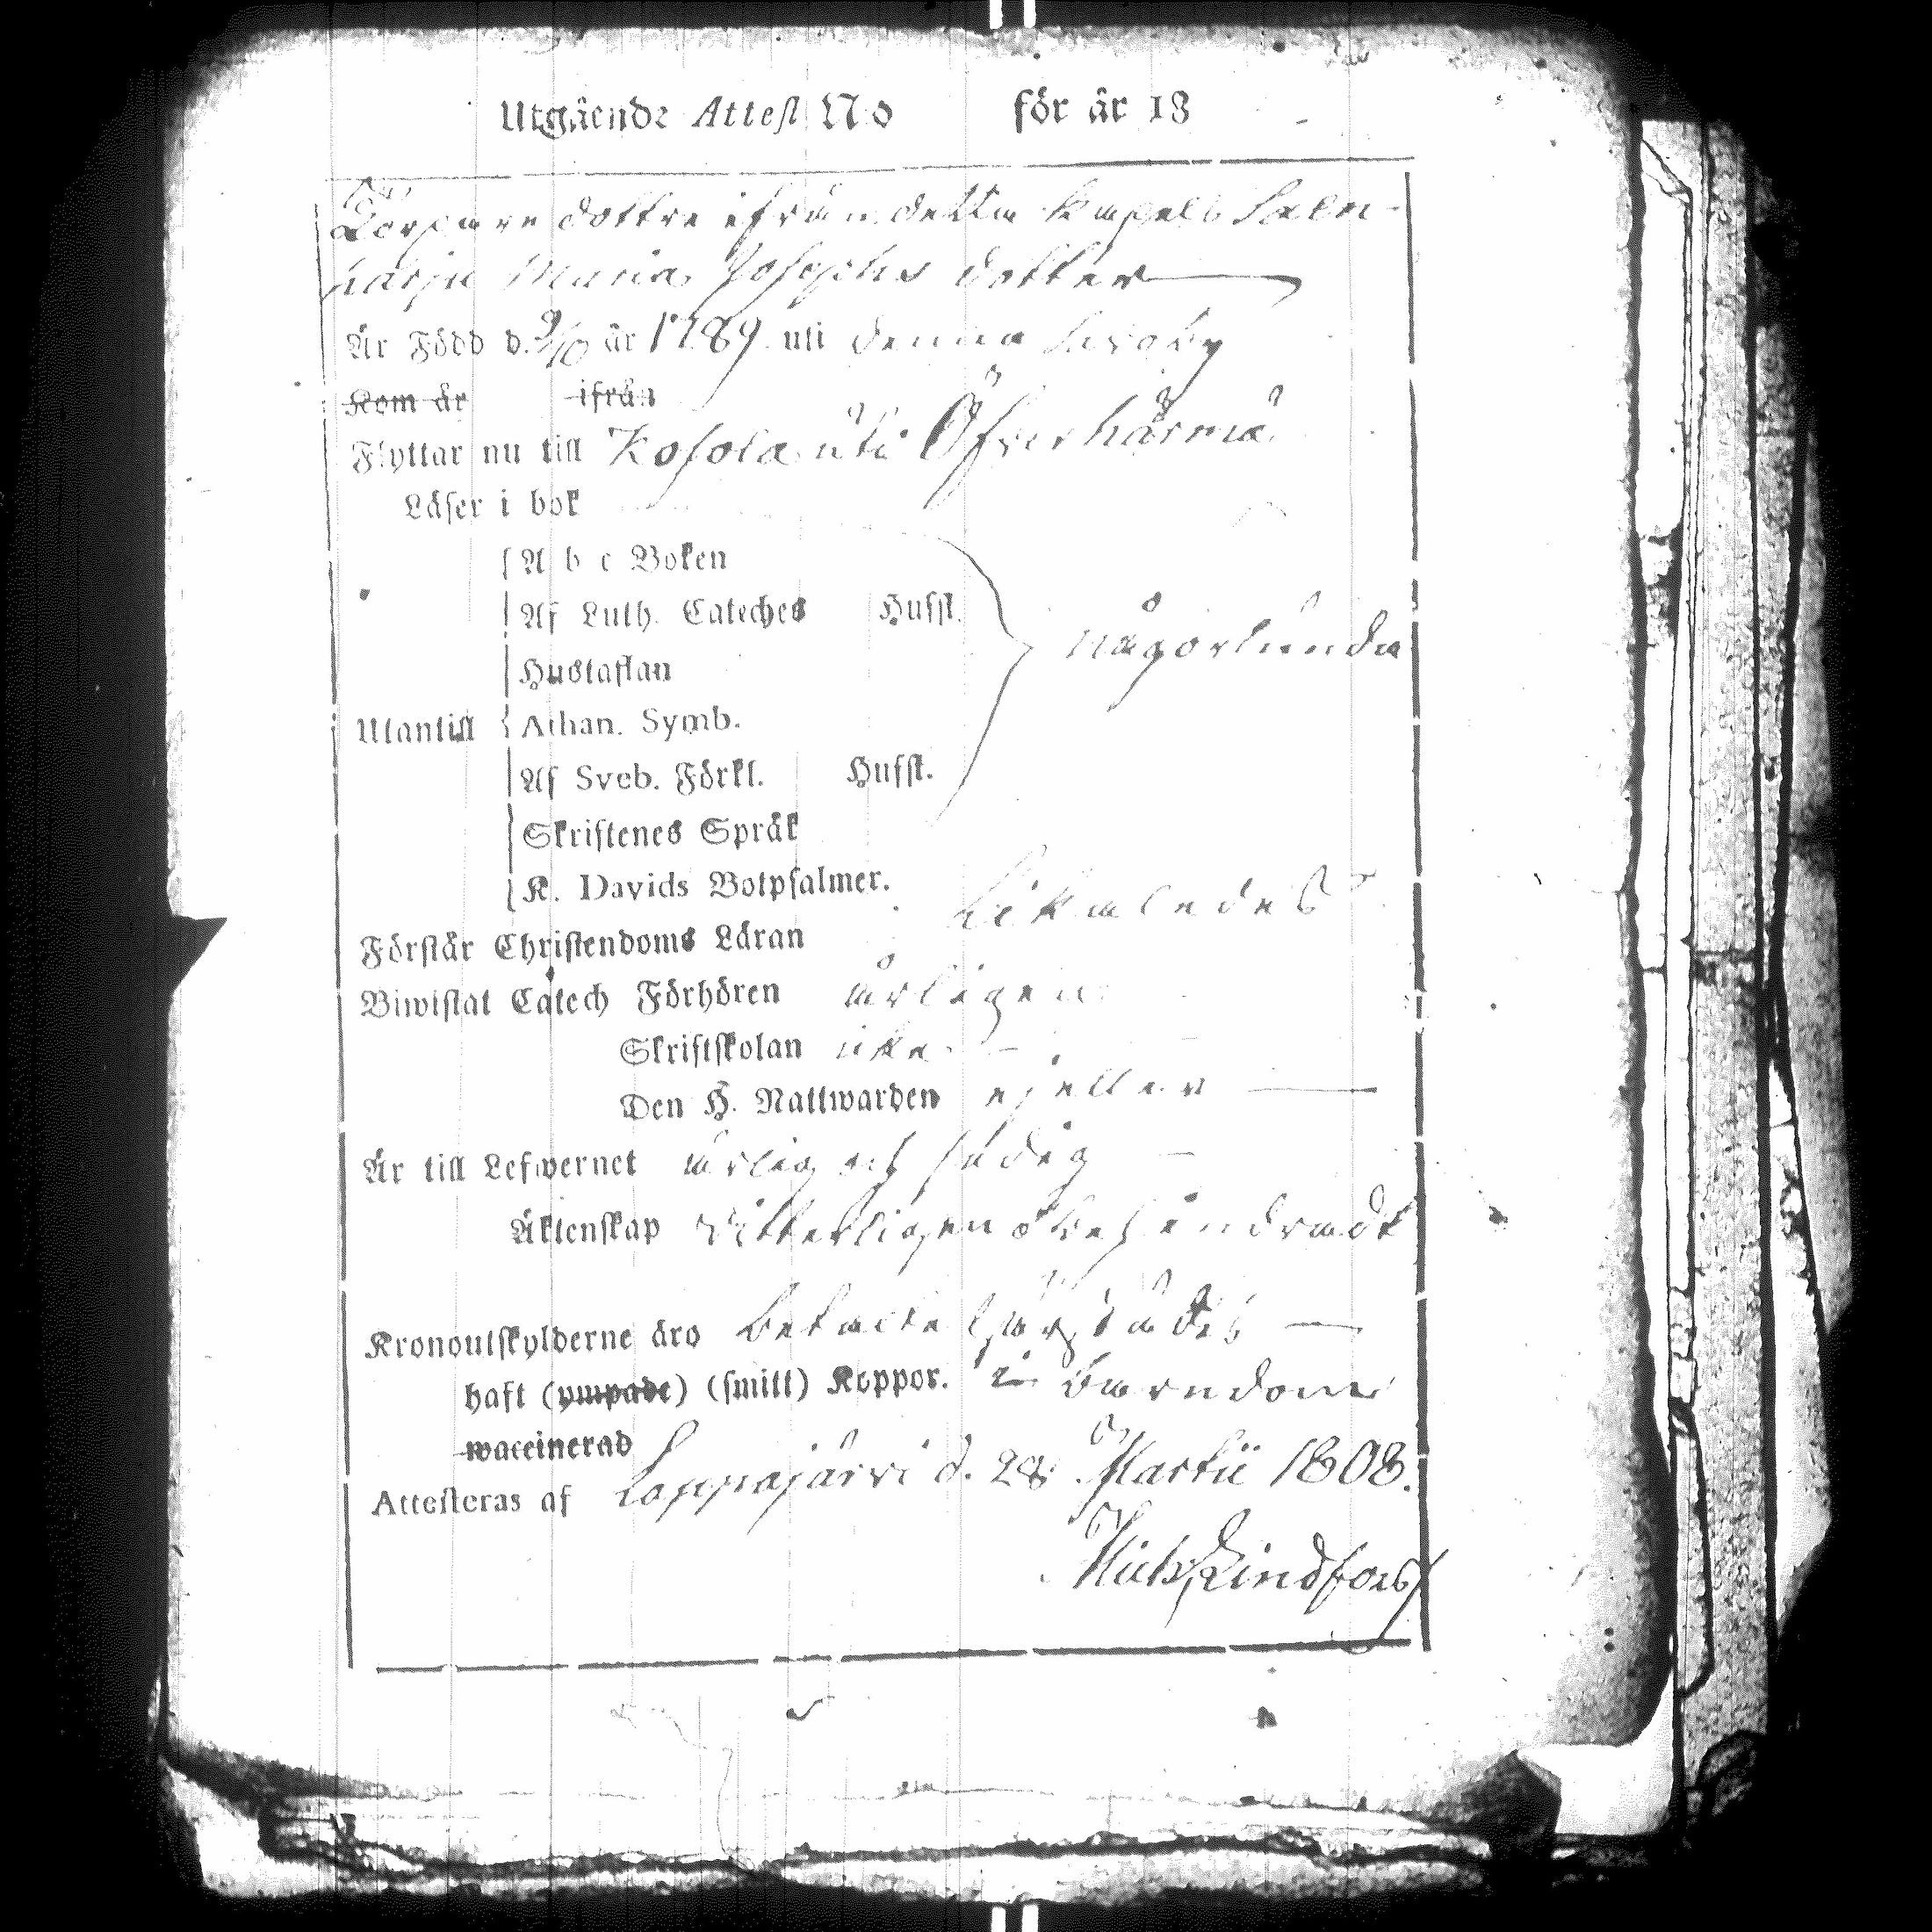 Utgående Attest No för år 18
Torpare dottre ifrån detta kapell Salen-
harju Maria Josephs dotter
Är Född d. 9/10 år 1789 uti denna
Kom år ifrån
Flyttar nu till Kosola uti Öfverhärmä
Läser i bok
A b c Boken
Af Luth. Cateches Hufst.
någorlunda
Hustaflan
Utantill Athan. Symb.
Af Sveb. Förkl. Hufst.
Skriftenes Språk
K. Davids Botpsalmer.
Likaledes
Förstår Christendoms Läran
Biwistat Catech Förhören årligen
Skriftskolan icke
Den H. Nattwarden ejeller
Är till Lefwernet ärlig och sedig
Äktenskap vitterligen obehindradt
Kronoutskylderne äro betalte
haft (ympade) (smitt) Koppor. i barndomen
waccinerad
Attesteras af Lappajärvi d. 28 Martii 1808.
Mich. Lindfors